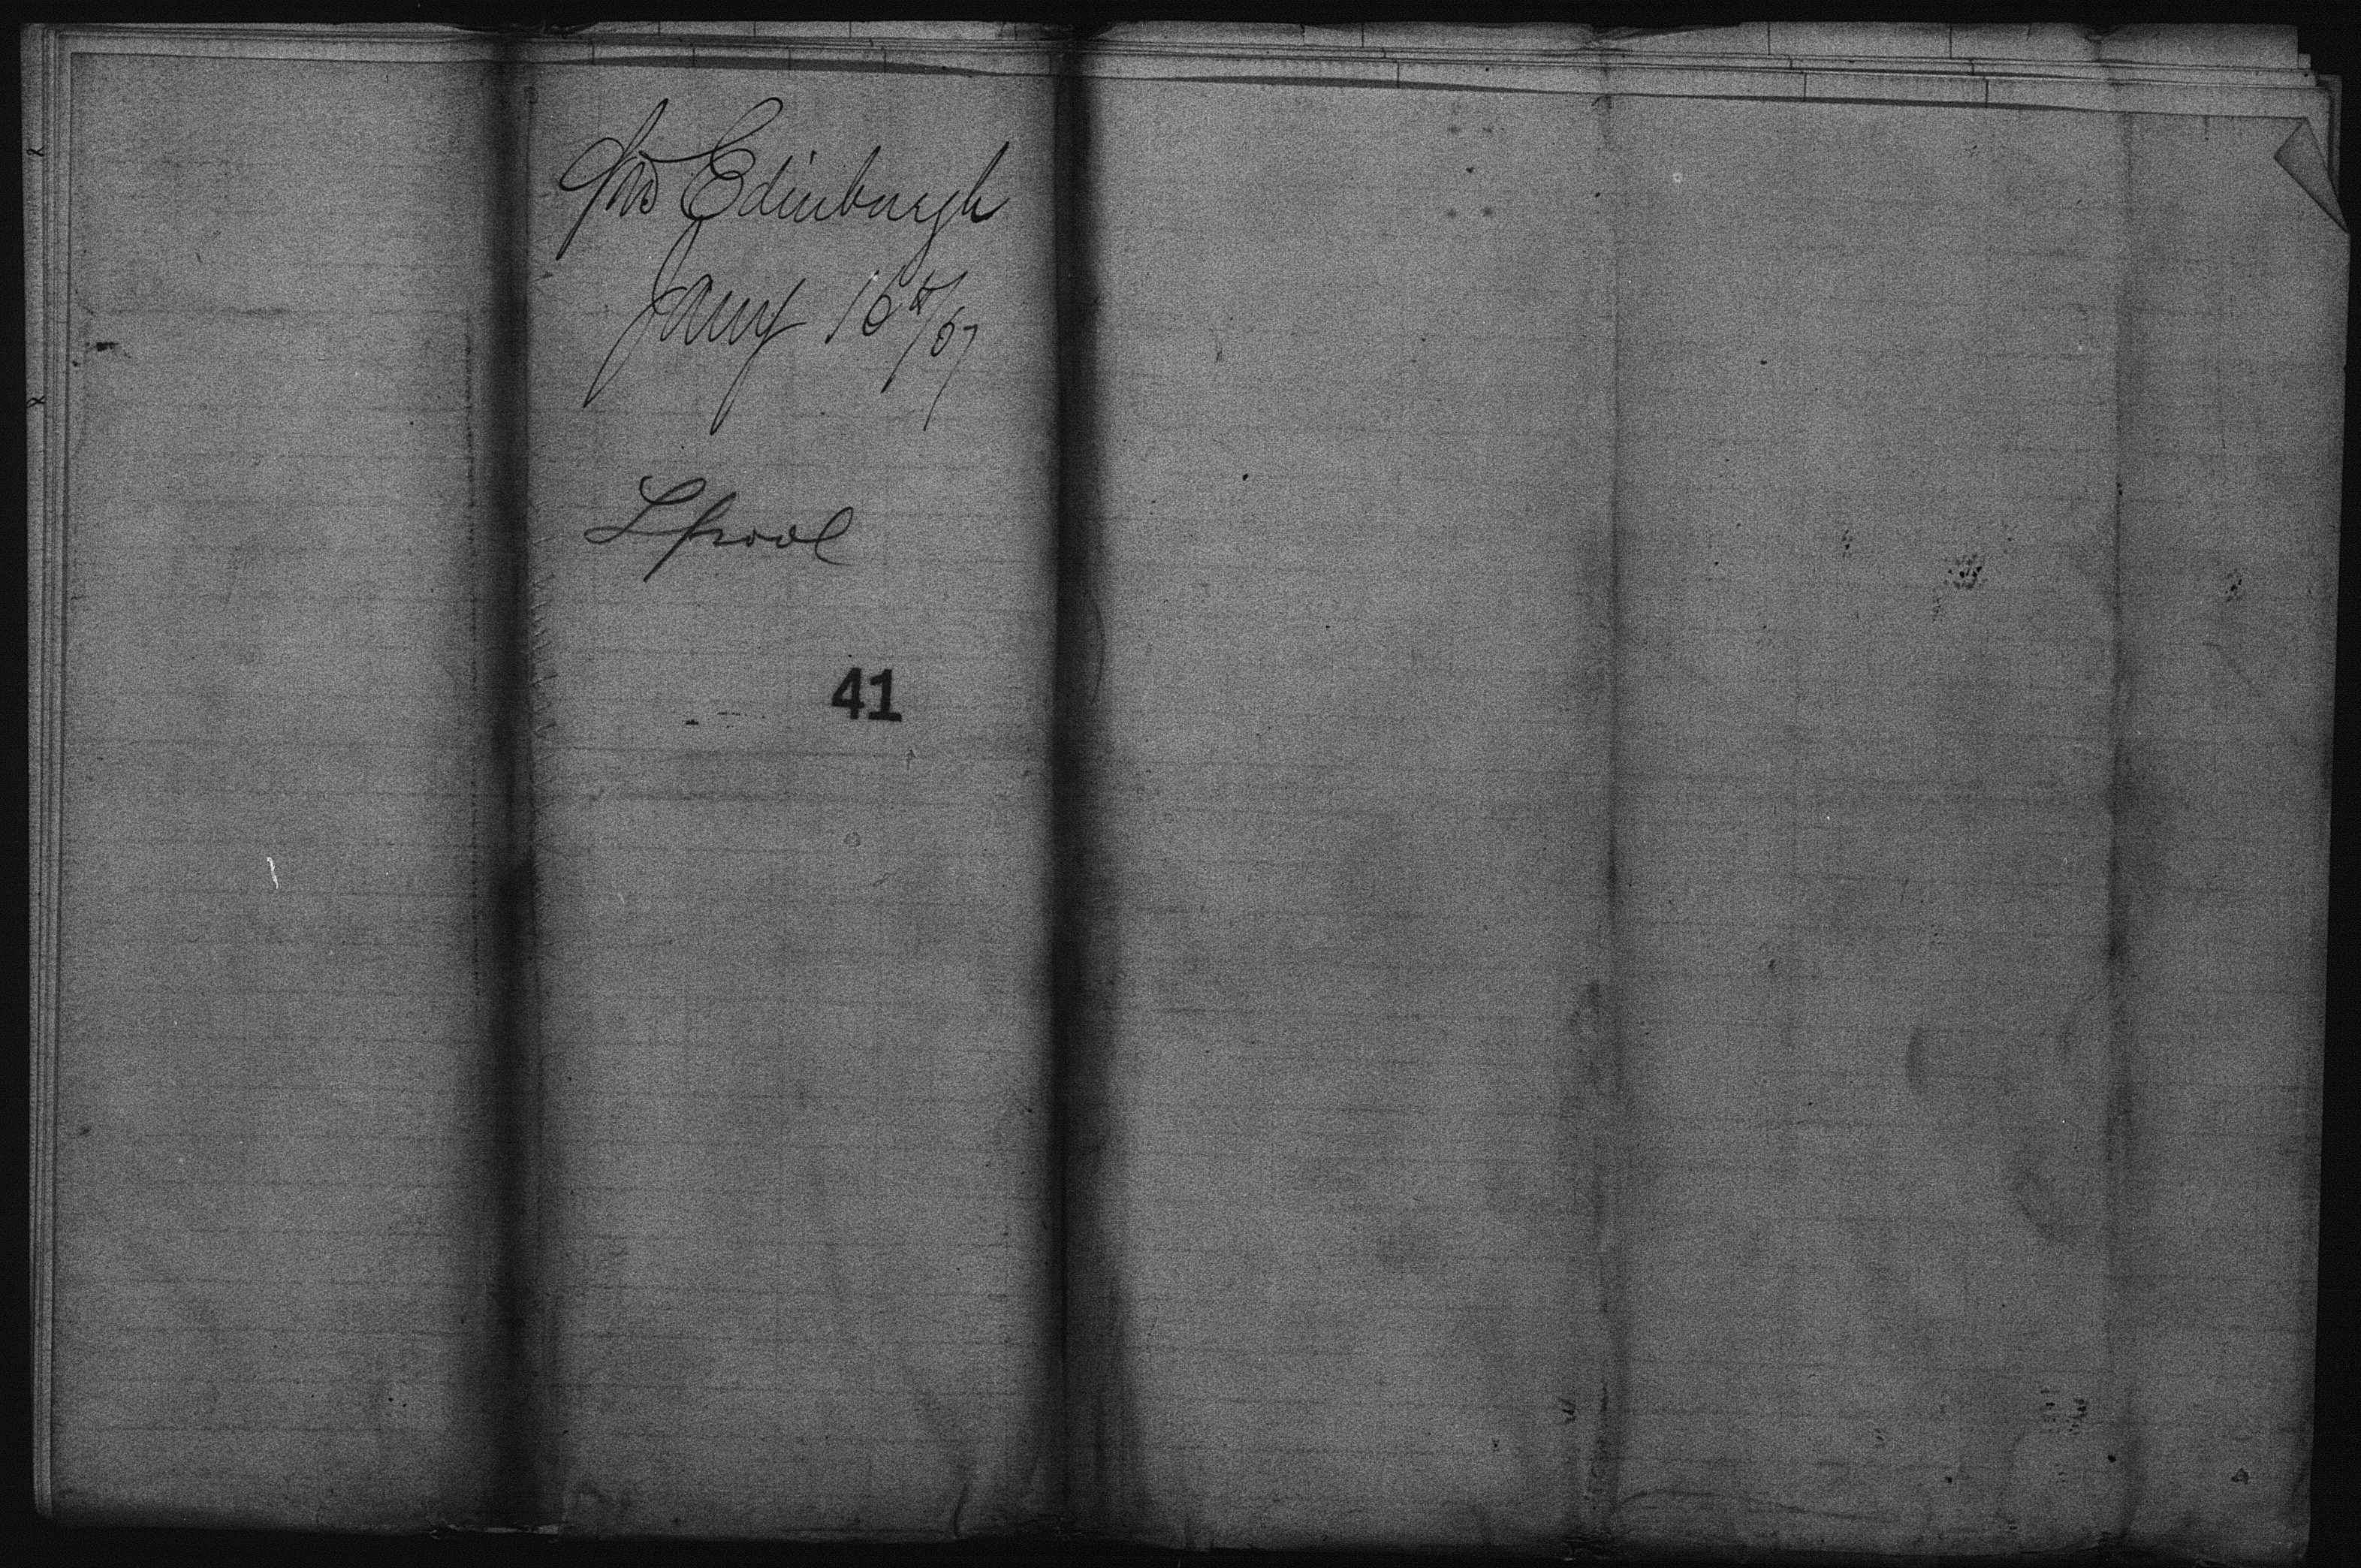 SS Edinburgh
Jany 16th/67
Lpool
41